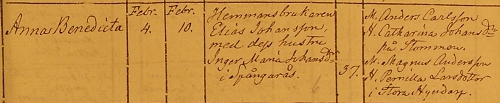 Anna Benedicta
Febr. 4.
Febr. 10.
Hemmansbrukaren
Elias Johansson,
med dess hustru
Inger Maria Johansdr
i Spångarås.
37.
M. Anders Carlsson
H. Catharina Johansdr
på Stommen.
M. Magnus Andersson
H. Pernilla Larsdotter
i Stora